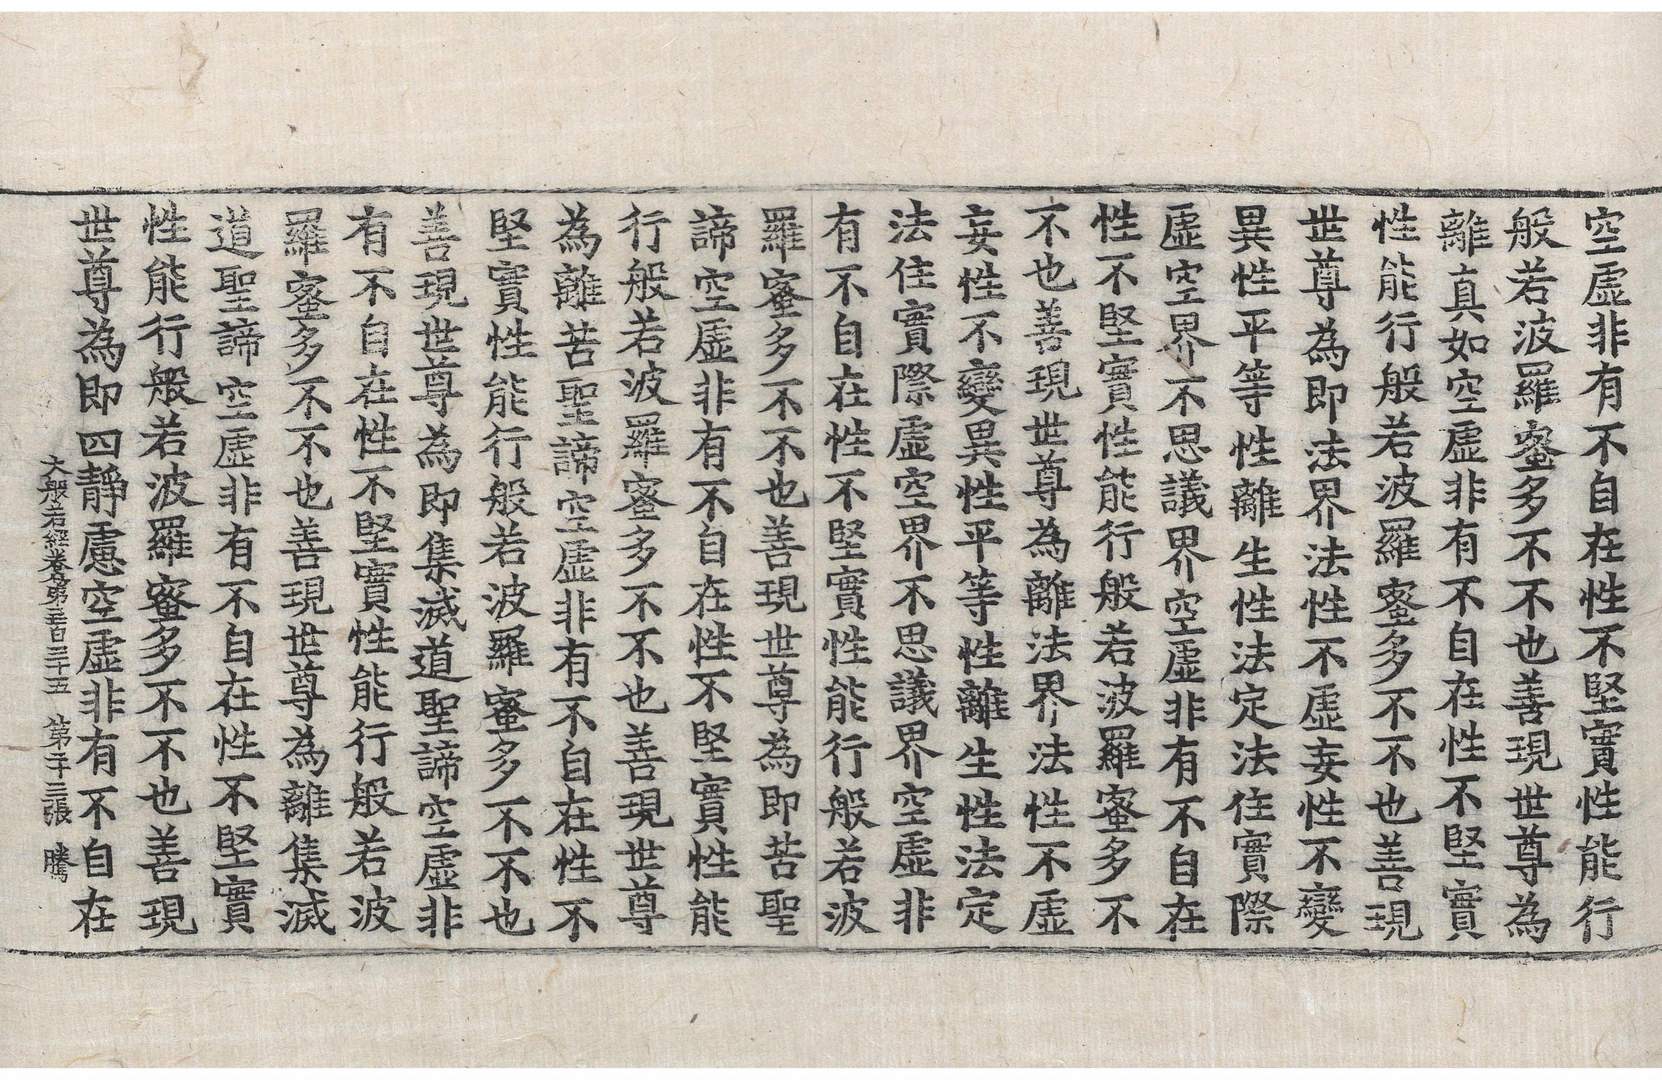 空虛非有不自在性不堅實性能行
般若波羅蜜多不不也善現世尊為
離真如空虛非有不自在性不堅實
性能行般若波羅蜜多不不也善現
世尊為即法界法性不虛妄性不變
異性平等性離生性法定法住實際
虛空界不思議界空虛非有不自在
性不堅實性能行般若波羅蜜多不
不也善現世尊為離法界法性不虛
妄性不變異性平等性離生性法定
法住實際虛空界不思議界空虛非
有不自在性不堅實性能行般若波
羅蜜多不不也善現世尊為即苦聖
諦空虛非有不自在性不堅實性能
行般若波羅蜜多不不也善現世尊
為離苦聖諦空虛非有不自在性不
堅實性能行般若波羅蜜多不不也
善現世尊為即集滅道聖諦空虛非
有不自在性不堅實性能行般若波
羅蜜多不不也善現世尊為離集滅
道聖諦空虛非有不自在性不堅實
性能行般若波羅蜜多不不也善現
世尊為即四靜慮空虛非有不自在
大般若經卷第三百三十五 第二十三張 騰